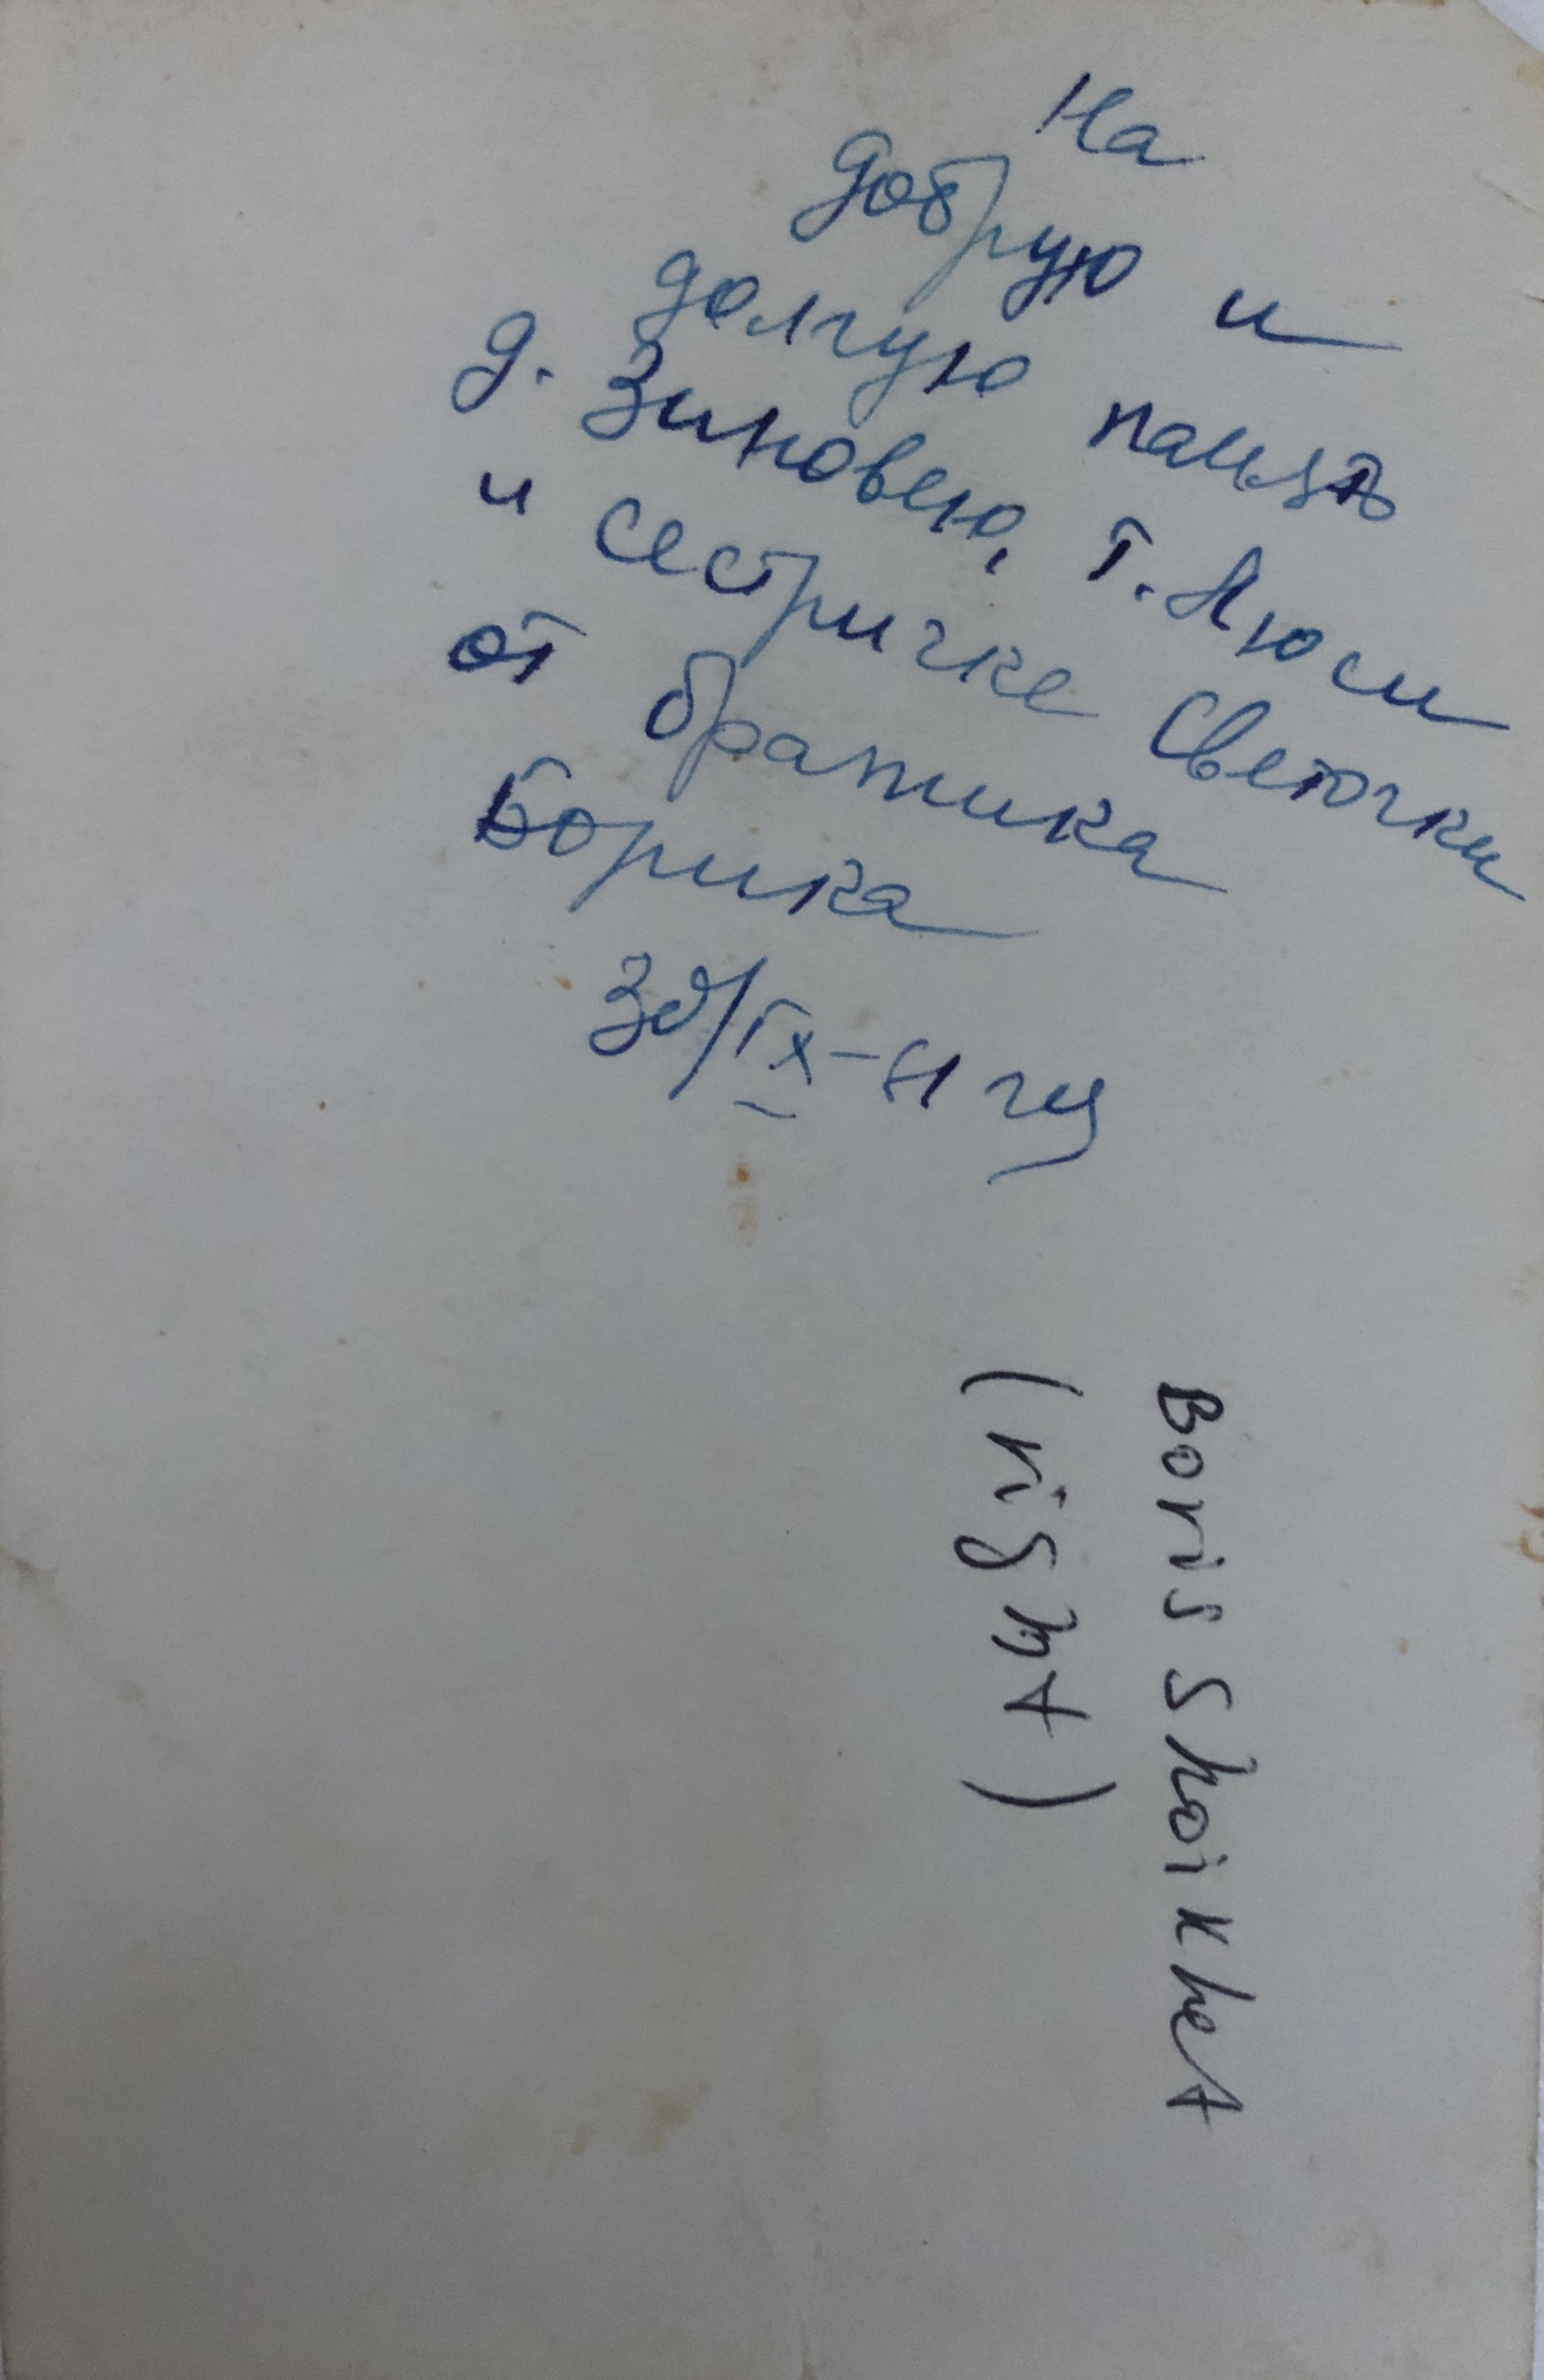 На
добрую и
долгую память
д. Зиновею, т. Нюси
и сестричке Светочки
от братика
Борика
30/IX-61 г
Boris Shoikhet
(right)